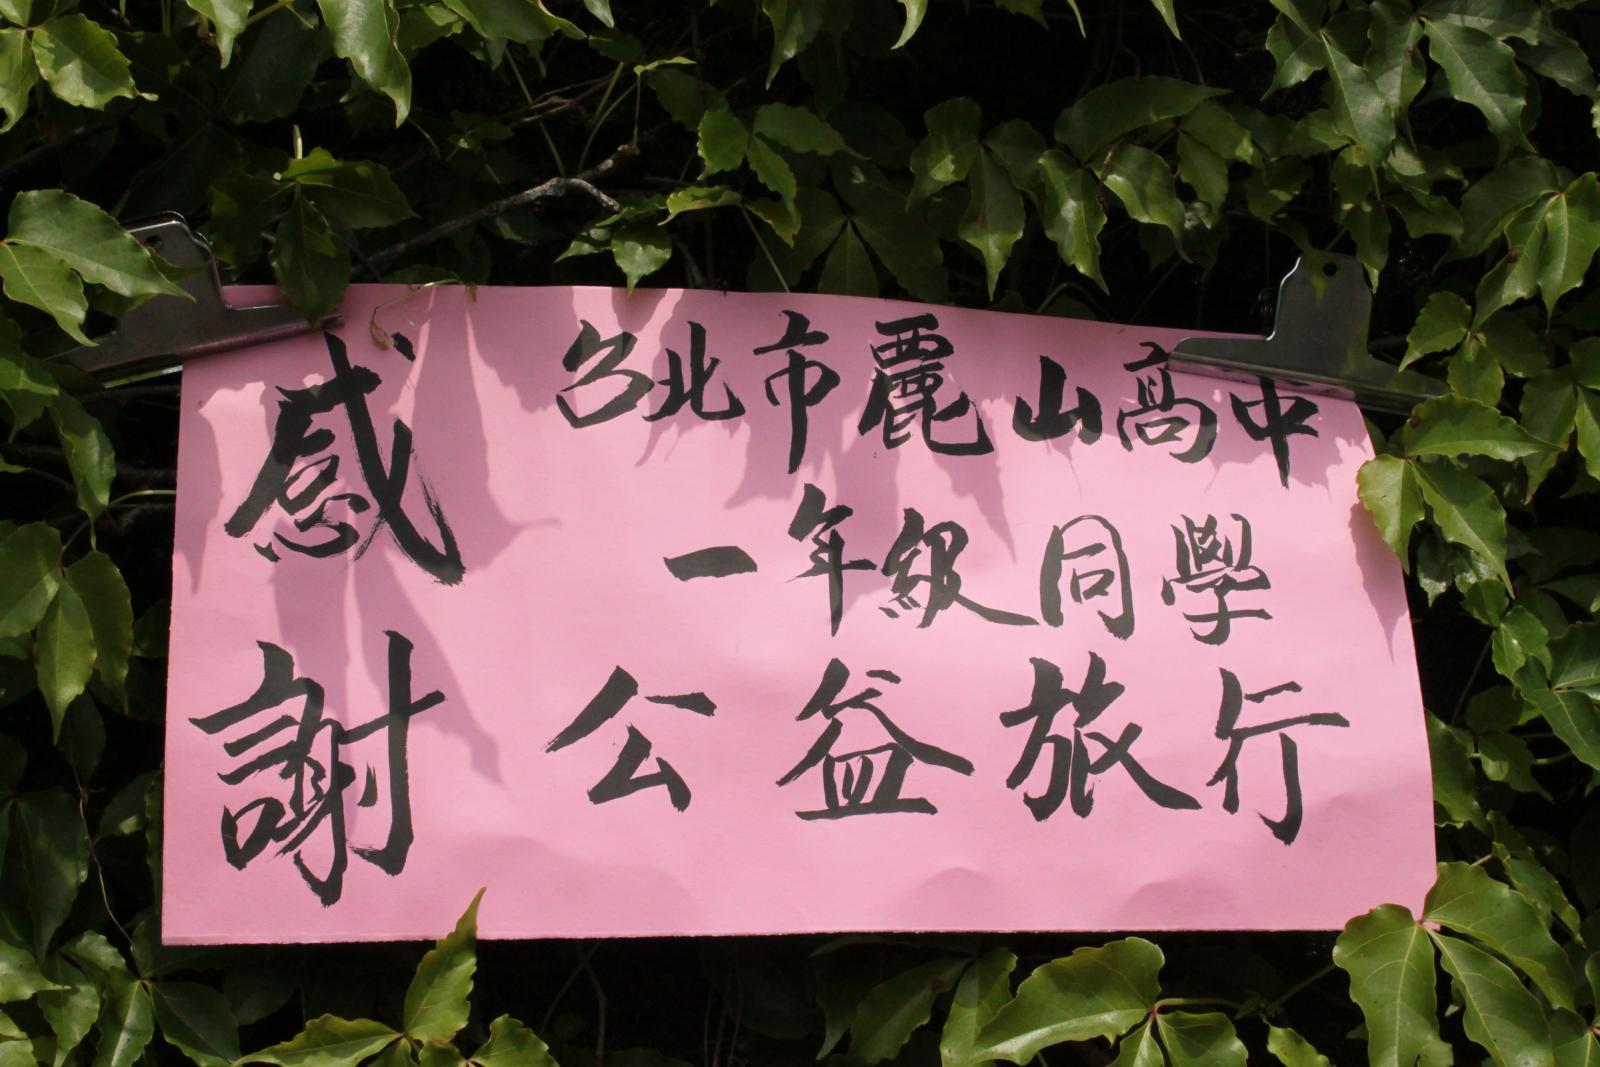 感謝
台北市麗山高中
一年級同學
公益旅行